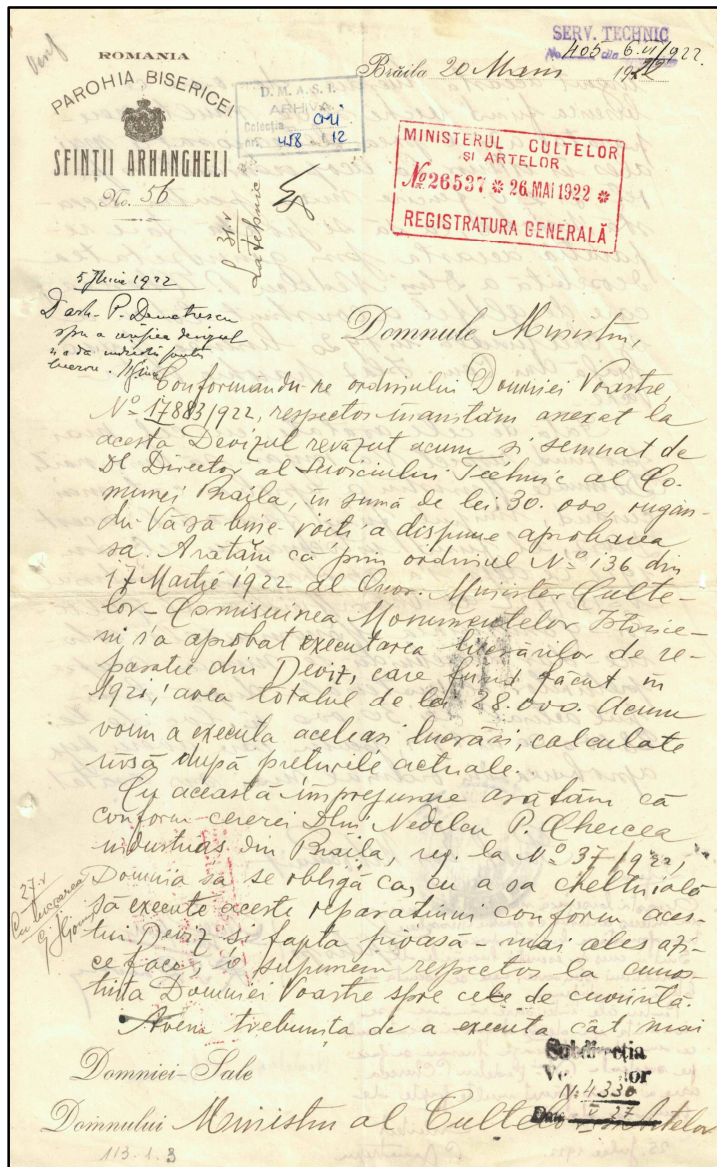 SERV. TECHNIC
No. 405 din 6.VI/1922.
ROMANIA
PAROHIA BISERICEI
SFINȚII ARHANGHELI
No. 56
Brăila 20 Maiu 1922
D. M. A. S. I.
ARHIVA
Colecția CMI
nr. 458 12
MINISTERUL CULTELOR
ȘI ARTELOR
No 26537 * 26 MAI 1922 *
REGISTRATURA GENERALĂ
31.V
La tehnic
5 Iunie 1922
D arh. P. Demetrescu
spre a verifica devizul
Domnule Ministru,
Conformându-ne ordinului Domniei Voastre,
No 17883/1922, respectos înaintăm anexat la
acesta Devizul revăzut acum și semnat de
Dl Director al Serviciului Technic al Co-
munei Braila, în sumă de lei 30.000, rugân-
du-Vă să bine-voiți a dispune aprobarea
sa. Arătăm că prin ordinul No 136 din
17 Martie 1922 al Onor. Minister Culte-
lor-Comisiunea Monumentelor Istorice-
ni s'a aprobat executarea lucrărilor de re-
parație din Deviz, care fiind făcut in
1921, avea totalul de lei 28.000. Acum
voim a executa aceleași lucrări, calculate
însă după prețurile actuale.
Cu această împrejurare arătăm că
conform cererei Dlui Nedelcu P. Chercea
industriaș din Braila, reg. la No 37/1922,
Domnia sa se obligă ca, cu a sa cheltuială
să execute aceste reparațiuni conform aces-
tui Deviz și fapta pioasă - mai ales azi -
ce face, o supunem respectos la cunoș-
tința Domniei Voastre spre cele de cuviință.
Avem trebuința de a executa cât mai
27.V
Cu lucrarea
Subdirecția
No. 4330
V 27
Domniei-Sale
Domnului Ministru al Cultelor și Artelor
113.1.3